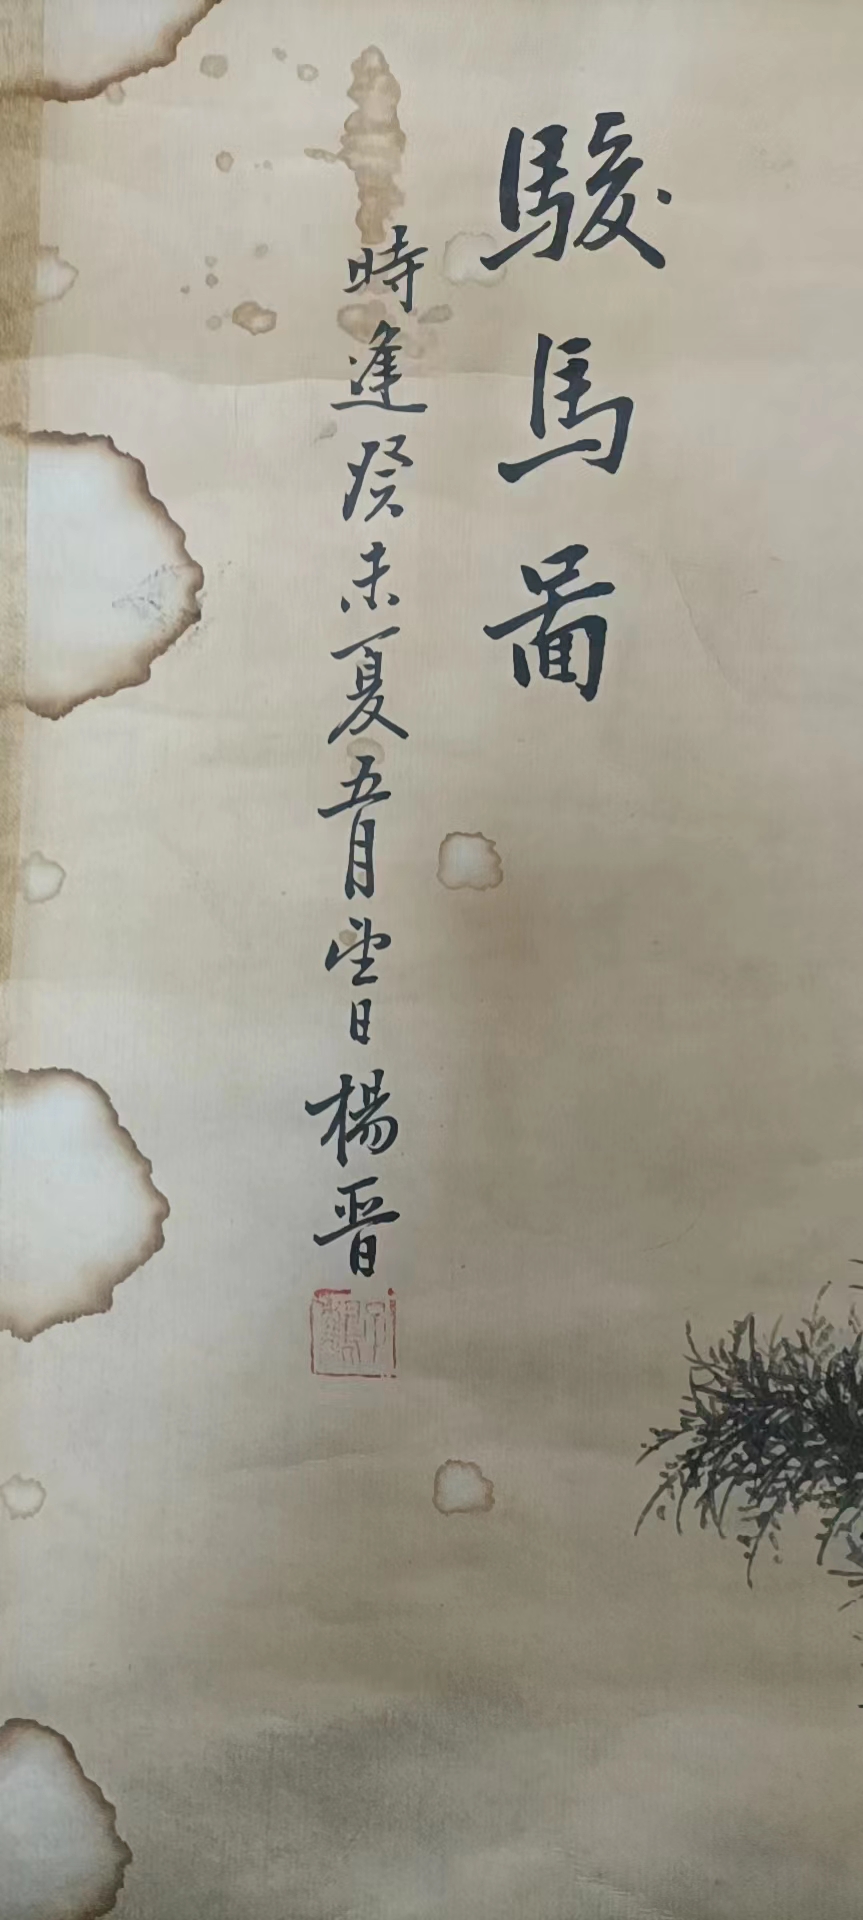 駿馬圖
時逢癸未夏五月望日楊晉